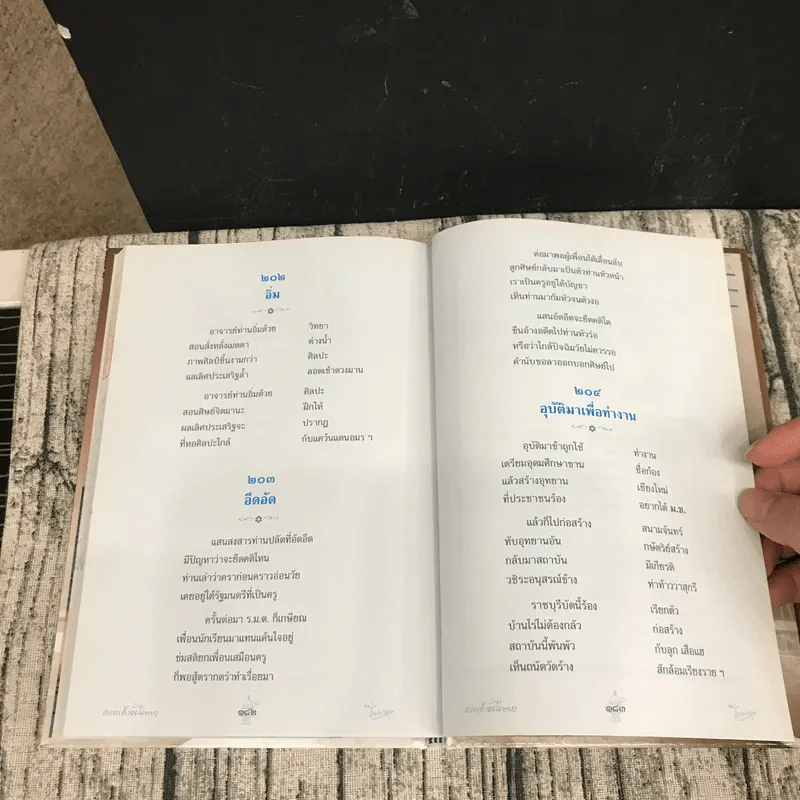 ๒๐๒
อิ่ม
อาจารย์ท่านอิ่มด้วย วิทยา
สอนสั่งหลั่งเมตตา ต่างน้ำ
ภาพศิลป์ชิ้นงามกว่า ศิลปะ
แลเลิศประเสริฐล้ำ ลอดเข้าดวงมาน
อาจารย์ท่านอิ่มด้วย ศิลปะ
สอนศิษย์จิตมานะ ฝึกให้
ผลเลิศประเสริฐจะ ปรากฏ
ที่หอศิลปะใกล้ กับแคว้นแดนอมร ฯ
๒๐๓
อึดอัด
แสนสงสารท่านปลัดที่อัดอึด
มีปัญหาว่าจะยึดคติไหน
ท่านเล่าว่าคราก่อนคราวอ่อนวัย
เคยอยู่ใต้รัฐมนตรีที่เป็นครู
ครั้นต่อมา ร.ม.ต. ก็เกษียณ
เพื่อนนักเรียนมาแทนแค้นใจอยู่
ข่มสติยกเพื่อนเสมือนครู
ก็พอสู้ตรากตรำทำเรื่อยมา
๑๘๒
ต่อมาพอผู้เพื่อนได้เลื่อนลับ
ลูกศิษย์กลับมาเป็นตัวท่านหัวหน้า
เราเป็นครูอยู่ใต้บัญชา
เห็นท่านมาก้มหัวจนตัวงอ
แสนอัดอึดจะยึดคติใด
ขืนอ้างอดีตไปท่านหัวร่อ
หรือว่าใกล้ปัจฉิมวัยไม่ควรรอ
คำนับขอลาออกบอกศิษย์ไป
๒๐๔
อุบัติมาเพื่อทำงาน
อุบัติมาข้าถูกใช้ ทำงาน
เตรียมอุดมศึกษาขาน ชื่อก้อง
แล้วสร้างอุทยาน เชียงใหม่
ที่ประชาชนร้อง อยากได้ ม.ช.
แล้วก็ไปก่อสร้าง สนามจันทร์
ทับอุทยานอัน กษัตริย์สร้าง
กลับมาสถาบัน มีเกียรติ
วชิระอนุสรณ์ข้าง ท่าท้าววาสุกรี
ราชบุรีบัดนี้ร้อง เรียกตัว
บ้านไร่ไม่ต้องกลัว ก่อสร้าง
สถาบันนี้พันพัว กับลูก เสือแฮ
เห็นถนัดวัดร้าง สักล้อมเรียงราย ฯ
๑๘๓